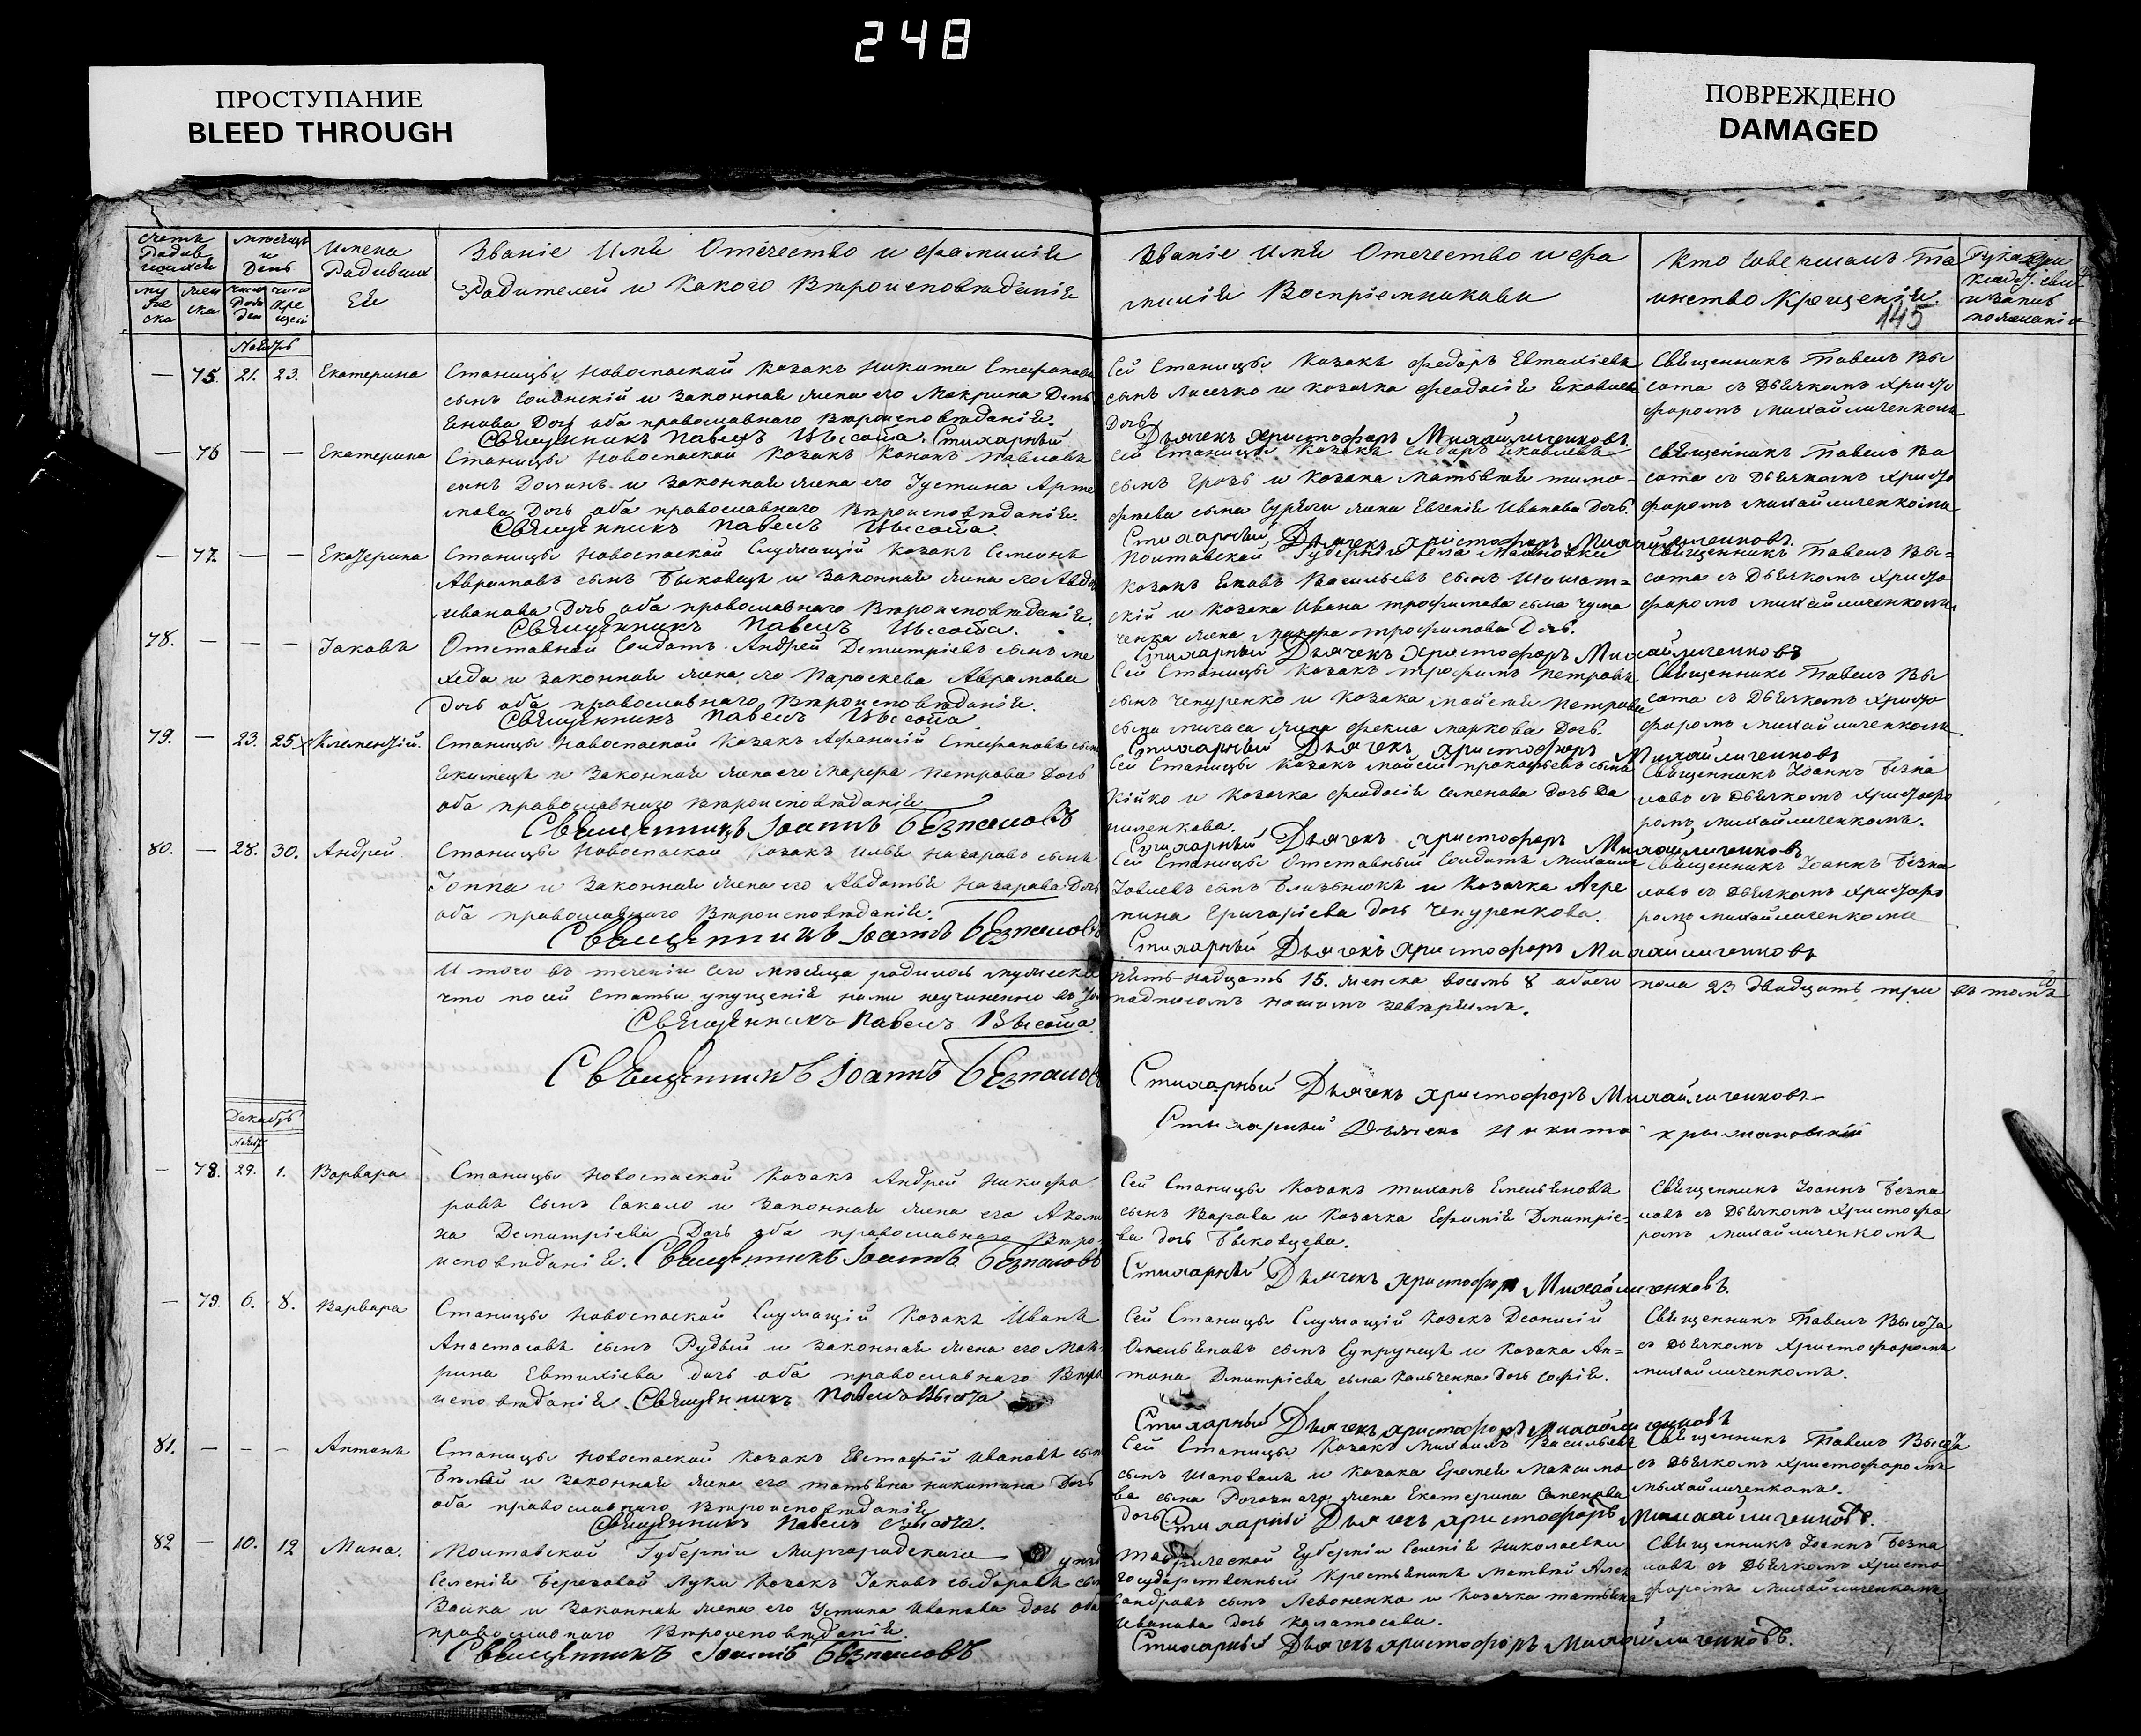 248
ПРОСТУПАНИЕ
BLEED THROUGH
ПОВРЕЖДЕНО
DAMAGED
Званіе Имя Отечество и фамилія
Родителей и какого Вѣроисповѣданія
Званіе Имя Отечество и фа
милія Воспріемниковъ
Кто совершалъ та
инство крещенія.
145
Имена
75. 21. 23. Екатерина
Станицы Новоспаской Козакъ Никита Стефановъ
и законная жена его Макрина
дочь оба православнаго Вѣроисповѣданія.
Священникъ Павелъ Высота. Стихарный
Сей Станицы Козакъ Федоръ Евтихіевъ
сынъ Лисечко и козачка Феодосія Яковлева
Дочь
Дьячекъ Христофоръ Михайличенковъ
Священникъ Павелъ Вы
сота съ Дьячкомъ Христо
форомъ Михайличенкомъ
76 — — Екатерина
Станицы Новоспаской Козакъ Кононъ Павловъ
сынъ Долинъ и законная жена его Густина Арте
мова Дочь оба православнаго Вѣроисповѣданія.
Священникъ Павелъ Высота.
Сей Станицы Козакъ Сидоръ Яковлевъ
сынъ и Козака Матвѣя Тимо
фѣева сына жена Евгенія Иванова Дочь.
Стихарный Дьячекъ Христофоръ Михайличенковъ.
Священникъ Павелъ Вы
сота съ Дьячкомъ Христо
форомъ Михайличенкомъ
77. — — Екатерина
Станицы Новоспаской Служащій Козакъ Семенъ
Аврамовъ сынъ Быковецъ и законная жена его Авдо
Иванова Дочь оба православнаго Вѣроисповѣданія.
Священникъ Павелъ Высота.
Полтавской Губерніи села
Козакъ Яковъ Васильевъ сынъ
скій и Козака Ивана Трофимова сына Чума
ченка жена Трофимова Дочь.
Стихарный Дьячекъ Христофоръ Михайличенковъ
Священникъ Павелъ Вы=
сота съ Дьячкомъ Христо
форомъ Михайличенкомъ
78. — — — Іаковъ
Отставной Солдатъ Андрей Демитріевъ сынъ
и законная жена его Параскева Аврамова
Дочь оба православнаго Вѣроисповѣданія.
Священникъ Павелъ Высота
Сей Станицы Козакъ Трофимъ Петровъ
сынъ Чепуренко и Козака Мойсея Петрова
сына жена Фекла Маркова Дочь.
Стихарный Дьячекъ Христофоръ Михайличенковъ
Священникъ Павелъ Вы
сота съ Дьячкомъ Христо
форомъ Михайличенкомъ
79. — 23. 25. Климентій.
Станицы Новоспаской Козакъ Афанасій Стефановъ сынъ
Екимецъ и законная жена его Марфа Петрова Дочь
оба православнаго Вѣроисповѣданія
Священникъ Іоаннъ Безпаловъ
Сей Станицы Козакъ Мойсей Прокофьевъ сынъ
Кійко и Козачка Феодосія Семенова дочь Да
ниленкова.
Стихарный Дьячекъ Христофоръ Михайличенковъ
Священникъ Іоаннъ Безпа
ловъ съ Дьячкомъ Христофо
ромъ Михайличенкомъ.
80. — 28. 30. Андрей.
Станицы Новоспаской Козакъ Илья Назаровъ сынъ
и законная жена его Авдотья Назарова Дочь
оба православнаго Вѣроисповѣданія.
Священникъ Іоаннъ Безпаловъ
Сей Станицы Отставный Солдатъ Михаилъ
Іовлевъ сынъ Близнюкъ и Козачка Агре
пина Григоріева дочь Чепуренкова.
Стихарный Дьячекъ Христофоръ Михайличенковъ
Священникъ Іоаннъ Безпа
ловъ съ Дьячкомъ Христофо
ромъ Михайличенкомъ
Итого въ теченіи сего мѣсяца родилось мужеска
пять-надцать 15. женска восемь 8 обоего пола 23 двадцать три въ томъ
что по сей статьи упущенія нами неучиненно въ
подписомъ нашимъ завѣряемъ.
Священникъ Павелъ Высота.
Священникъ Іоаннъ Безпаловъ
Стихарный Дьячекъ Христофоръ Михайличенковъ
Стихарный Дьячекъ Никита
Декабрь
78. 29. 1. Варвара
Станицы Новоспаской Козакъ Андрей Никифо
ровъ сынъ Сокало и законная жена его Акили
на Демитріева Дочь оба православнаго Вѣро
исповѣданія. Священникъ Іоаннъ Безпаловъ
Сей Станицы Козакъ Тихонъ Емельяновъ
сынъ Варава и Козачка Ефимія Дмитріе=
ва дочь Быковцева.
Стихарный Дьячекъ Христофоръ Михайличенковъ.
Священникъ Іоаннъ Безпа
ловъ съ Дьячкомъ Христофо
ромъ Михайличенкомъ
79. 6. 8. Варвара
Станицы Новоспаской Служащій Козакъ Иванъ
Анастасовъ сынъ Рудый и законная жена его Мак
рина Евтихіева дочь оба православнаго Вѣро
исповѣданія. Священникъ Павелъ Высота
Сей Станицы Служащій Козакъ Деонисій
Омельяновъ сынъ Супрунецъ и Козака Ан=
тона Дмитріева сына Кальченка дочь Софія.
Стихарный Дьячекъ Христофоръ Михайличенковъ
Священникъ Павелъ Высота
съ Дьячкомъ Христофоромъ
Михайличенкомъ.
81. — — — Антонъ
Станицы Новоспаской Козакъ Евстафій Ивановъ сынъ
Бѣлый и законная жена его Татьяна Никитина Дочь
оба православнаго Вѣроисповѣданія
Священникъ Павелъ Высота.
Сей Станицы Козакъ Михаилъ Васильевъ
сынъ Шаповалъ и Козака Еремея Максимо
ва сына жена Екатерина Семенова
дочь. Стихарный Дьячекъ Христофоръ Михайличенковъ.
Священникъ Павелъ Высота
съ Дьячкомъ Христофоромъ
Михайличенкомъ.
82 — 10. 12 Мина.
Полтавской Губерніи Миргородскаго
Селенія Березовой Луки Козакъ Іаковъ Сыдоровъ сынъ
Заика и законная жена его Устина Иванова дочь оба
православнаго Вѣроисповѣданія.
Священникъ Іоаннъ Безпаловъ
Таврической Губерніи Селенія Николаевки
Государственный Крестьянинъ Матвѣй Алек
сандровъ сынъ Левоненко и Козачка Татьяна
Иванова дочь
Стихарный Дьячекъ Христофоръ Михайличенковъ.
Священникъ Іоаннъ Безпа
ловъ съ Дьячкомъ Христо
форомъ Михайличенкомъ.